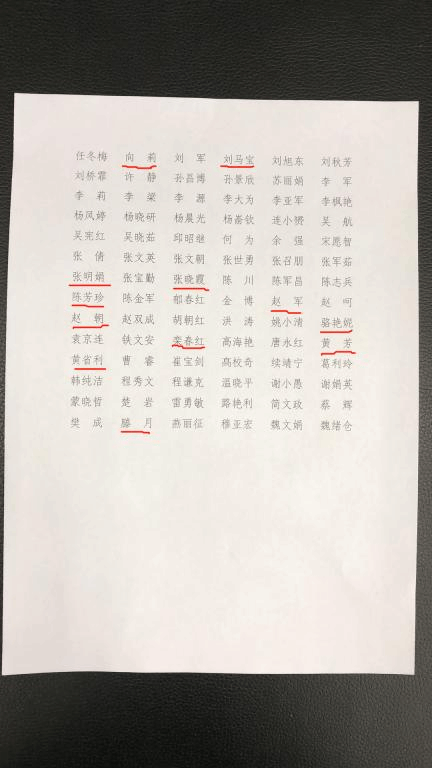 任冬梅 向莉 刘军 刘马宝 刘旭东 刘秋芳
刘桥霏 许静 孙昌博 孙景欣 苏丽娟 李军
李莉 李梁 李源 李大为 李亚军 李枫艳
杨凤婷 杨晓研 杨晨光 杨嵛钦 连小赟 吴航
吴宪红 吴晓茹 邱昭继 何为 余强 宋愿智
张倩 张文英 张文朝 张世勇 张召朋 张军茹
张明娟 张宝勤 张晓霞 陈川 陈军昌 陈志兵
陈芳珍 陈金军 郁春红 金博 赵军 赵呵
赵朝 赵双成 胡朝红 洪涛 姚小清 骆艳妮
袁京连 铁文安 栾春红 高海艳 唐永红 黄芳
黄省利 曹睿 崔宝剑 高校奇 续靖宁 葛利玲
韩纯洁 程秀文 程谦克 温晓平 谢小愚 谢娟英
蒙晓哲 楚岩 雷勇敏 路艳利 简文政 蔡辉
樊成 滕月 燕丽征 穆亚宏 魏文娟 魏绪仓